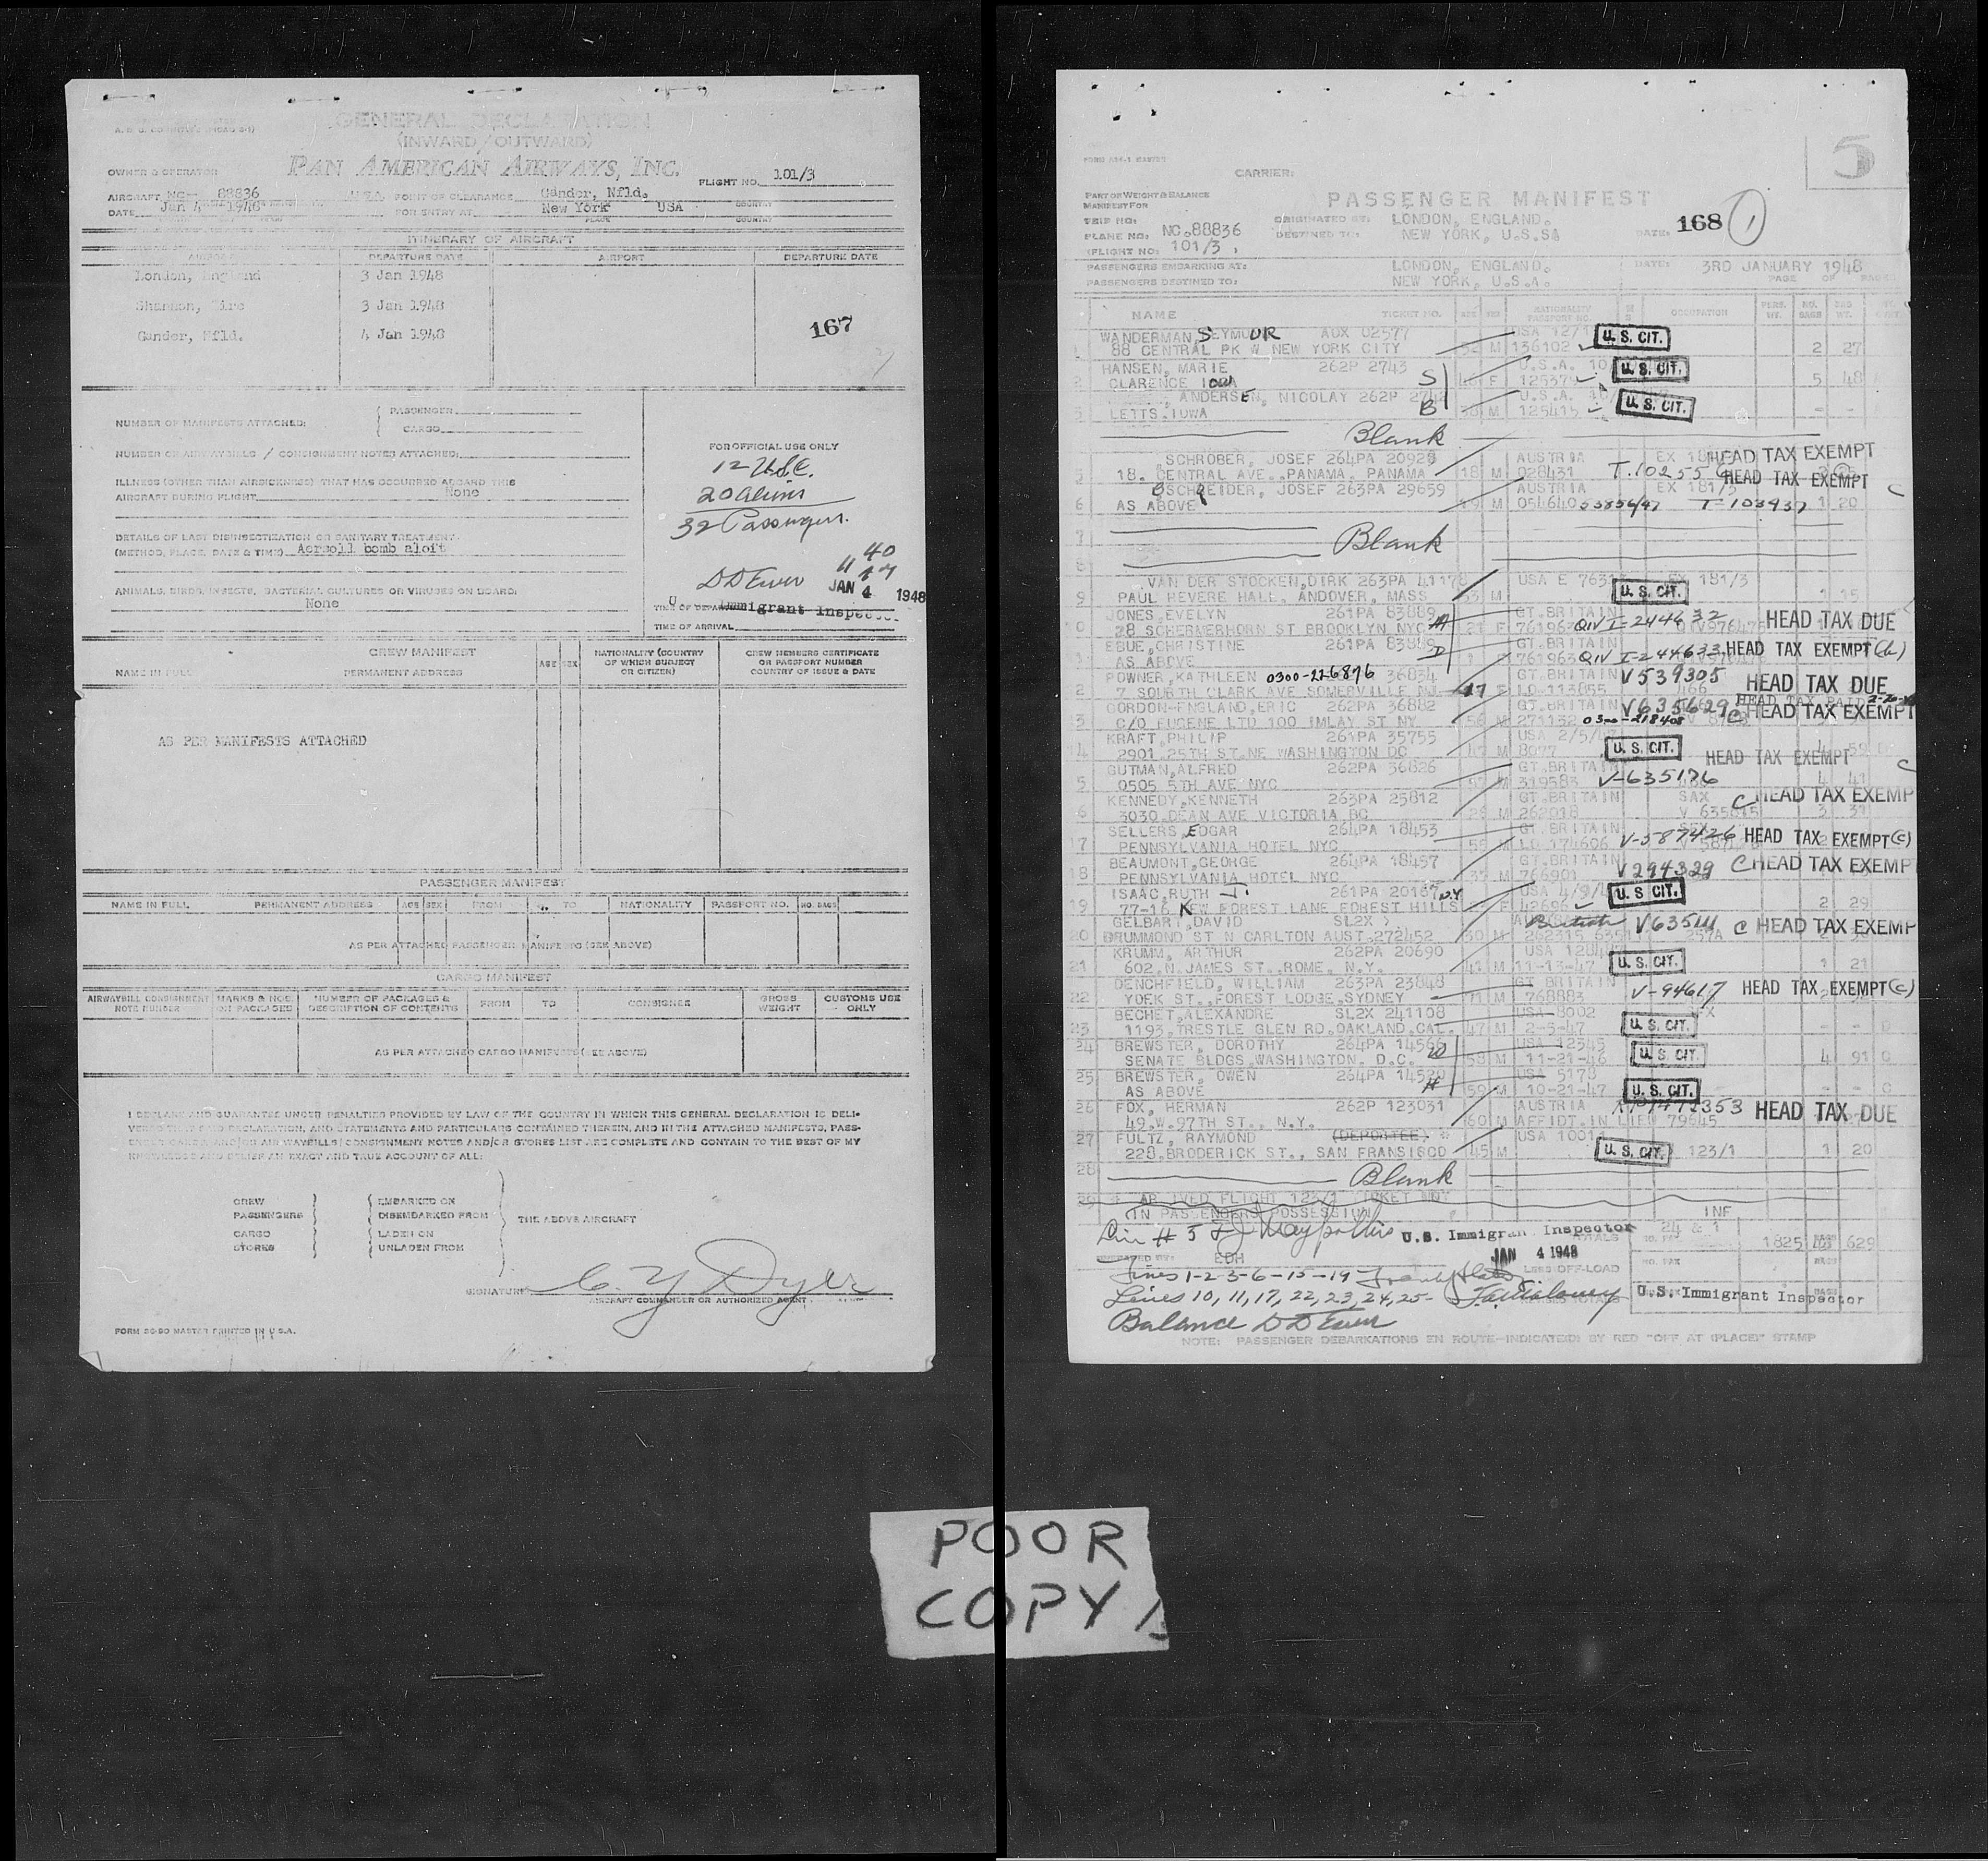 GENERAL DECLARATION
(INWARD/OUTWARD)
PAN AMERICAN AIRWAYS, INC.
OWNER & OPERATOR
FLIGHT NO. 101/3
AIRCRAFT NC- 88836 USA POINT OF CLEARANCE Gander, Nfld. COUNTRY
DATE Jan 4 1948 FOR ENTRY AT New York USA
PLACE COUNTRY
ITINERARY OF AIRCRAFT
AIRPORT DEPARTURE DATE AIRPORT DEPARTURE DATE
London, England 3 Jan 1948
Shannon, Eire 3 Jan 1948
Gander, Nfld. 4 Jan 1948
167
NUMBER OF MANIFESTS ATTACHED: PASSENGER
CARGO
NUMBER OF AIRWAYBILLS / CONSIGNMENT NOTES ATTACHED:
ILLNESS (OTHER THAN AIRSICKNESS) THAT HAS OCCURRED ABOARD THIS
AIRCRAFT DURING FLIGHT None
DETAILS OF LAST DISINSECTIZATION OR SANITARY TREATMENT
(METHOD, PLACE, DATE & TIME) Aersoll bomb aloft
ANIMALS, BIRDS, INSECTS, BACTERIAL CULTURES OR VIRUSES ON BOARD:
None
FOR OFFICIAL USE ONLY
12 USC.
20 Aliens
32 Passengers.
DD Ewen
JAN 4 1948
Immigrant Inspector
TIME OF DEPARTURE
TIME OF ARRIVAL
CREW MANIFEST
NAME IN FULL PERMANENT ADDRESS AGE SEX NATIONALITY (COUNTRY OF WHICH SUBJECT OR CITIZEN) CREW MEMBERS CERTIFICATE OR PASSPORT NUMBER COUNTRY OF ISSUE & DATE
AS PER MANIFESTS ATTACHED
PASSENGER MANIFEST
NAME IN FULL PERMANENT ADDRESS AGE SEX FROM TO NATIONALITY PASSPORT NO. NO. BAGS
AS PER ATTACHED PASSENGER MANIFESTS (SEE ABOVE)
CARGO MANIFEST
AIRWAYBILL CONSIGNMENT NOTE NUMBER MARKS & NOS. ON PACKAGES NUMBER OF PACKAGES & DESCRIPTION OF CONTENTS FROM TO CONSIGNEE GROSS WEIGHT CUSTOMS USE ONLY
AS PER ATTACHED CARGO MANIFESTS (SEE ABOVE)
I DECLARE AND GUARANTEE UNDER PENALTIES PROVIDED BY LAW OF THE COUNTRY IN WHICH THIS GENERAL DECLARATION IS DELI-
VERED THAT SAID DECLARATION, AND STATEMENTS AND PARTICULARS CONTAINED THEREIN, AND IN THE ATTACHED MANIFESTS, PASS-
ENGER CARGO AND/OR AIR WAYBILLS/CONSIGNMENT NOTES AND/OR STORES LIST ARE COMPLETE AND CONTAIN TO THE BEST OF MY
KNOWLEDGE AND BELIEF AN EXACT AND TRUE ACCOUNT OF ALL:
CREW EMBARKED ON
PASSENGERS DISEMBARKED FROM THE ABOVE AIRCRAFT
CARGO LADEN ON
STORES UNLADEN FROM
SIGNATURE C. Y. Dyer
AIRCRAFT COMMANDER OR AUTHORIZED AGENT
PRINTED IN U.S.A.
5
CARRIER:
PART OR WEIGHT & BALANCE
MANIFEST FOR
PASSENGER MANIFEST
TRIP NO:
PLANE NO: NC.88836 ORIGINATED AT: LONDON, ENGLAND.
DESTINED TO: NEW YORK, U.S.SA DATE: 168 1
(FLIGHT NO: 101/3
PASSENGERS EMBARKING AT: LONDON, ENGLAND. DATE: 3RD JANUARY 1948
PASSENGERS DESTINED TO: NEW YORK, U.S.A. PAGE OF PAGES
NAME TICKET NO. AGE SEX NATIONALITY PASSPORT NO. OCCUPATION PERS. WT. NO. BAGS BAG WT.
WANDERMAN, SEYMOUR AOX 02577 USA U. S. CIT.
88 CENTRAL PK W NEW YORK CITY M 136102 2 27
HANSEN, MARIE 262P 2743 S U.S.A. 10 U. S. CIT.
2 CLARENCE IOWA F 5 48
ANDERSEN, NICOLAY 262P B U.S.A. U. S. CIT.
3 LETTS. IOWA M 125415
Blank
SCHROBER, JOSEF 264PA 20929 AUSTRIA HEAD TAX EXEMPT
5 18. CENTRAL AVE., PANAMA, PANAMA 18 M 028431 HEAD TAX EXEMPT
SCHREIDER, JOSEF 263PA 29659 AUSTRIA EX 181/3 C
6 AS ABOVE M 054640 T-103937 1 20
7 Blank
8
VAN DER STOCKEN, DIRK 263PA 41178 USA E EX 181/3 U. S. CIT.
9 PAUL REVERE HALL, ANDOVER, MASS M 1 15
JONES, EVELYN 261PA 83889 GT. BRITAIN HEAD TAX DUE
10 28 SCHERMERHORN ST BROOKLYN NYC F QIV I-244632
EBUE, CHRISTINE 261PA 83889 GT. BRITAIN HEAD TAX EXEMPT (b)
AS ABOVE 761963 QIV I-244633
POWNER, KATHLEEN 0300-226876 36834 GT. BRITAIN V539305 HEAD TAX DUE
2 7 SOURTH CLARK AVE SOMERVILLE NJ LO-113855
GORDON-ENGLAND, ERIC 262PA 36882 GT. BRITAIN V635629 C HEAD TAX EXEMPT
3 C/O EUGENE LTD 100 IMLAY ST NY. 56 M 271152 0300-218408
KRAFT, PHILIP 261PA 35755 USA 2/5/ U. S. CIT.
14 2901 25TH ST. NE WASHINGTON DC 47 M 8077 HEAD TAX EXEMPT
GUTMAN, ALFRED 262PA 36826 GT. BRITAIN V-635176 C
5 0505 5TH AVE NYC M 319583 4 41
KENNEDY, KENNETH 263PA 25812 GT. BRITAIN SAX C HEAD TAX EXEMP
6 3030 DEAN AVE VICTORIA BC M 262018 3 31
SELLERS, EDGAR 264PA 18453 GT. BRITAIN V-587426 HEAD TAX EXEMPT (c)
17 PENNSYLVANIA HOTEL NYC M LO 174606
BEAUMONT, GEORGE 264PA 18457 GT. BRITAIN V294329 C HEAD TAX EXEMP
18 PENNSYLVANIA HOTEL NYC 37 M 766901
ISAAC, RUTH J. 261PA 20167 N.Y USA 4/9/ U. S. CIT.
19 77-16 KEW FOREST LANE FOREST HILLS F 42696 2 29
GELBART, DAVID SL2X British V635111 C HEAD TAX EXEMP
20 DRUMMOND ST N CARLTON AUST. 272452 30 M
KRUMM, ARTHUR 262PA 20690 USA U. S. CIT.
21 602. N. JAMES ST., ROME, N.Y. 41 M 11-13-47 1 21
DENCHFIELD, WILLIAM 263PA 23848 GT BRITAIN V-94617 HEAD TAX EXEMPT (c)
22 YOEK ST., FOREST LODGE, SYDNEY 71 M 768883
BECHET, ALEXANDRE SL2X 241108 USA 8002
23 1193. TRESTLE GLEN RD. OAKLAND, CAL. 47 M 2-5-47 U. S. CIT.
24 BREWSTER, DOROTHY 264PA 14566 W USA 12345 U. S. CIT.
SENATE BLDGS, WASHINGTON, D.C. 58 M 11-21-46 4 91
25 BREWSTER, OWEN 264PA 14520 H USA 5178
AS ABOVE 59 M 10-21-47 U. S. CIT.
26 FOX, HERMAN 262P 123031 AUSTRIA HEAD TAX DUE
49. W. 97TH ST., N.Y. 60 M AFFIDT. IN LIEU 79645
27 FULTZ, RAYMOND (DEPORTEE) * USA
228, BRODERICK ST., SAN FRANSISCO 45 M U. S. CIT. 123/1 1 20
28 Blank
29 * ARRIVED FLIGHT 123/1 TICKET NOT
IN PASSENGERS POSSESSION INF
U.S. Immigrant Inspector 24 & 1
EDH JAN 4 1948 1825 629
LESS OFF-LOAD
Lines 1-2-3-6-15-19
Lines 10, 11, 17, 22, 23, 24, 25- U.S. Immigrant Inspector
Balance DD Ewen
NOTE: PASSENGER DEBARKATIONS EN ROUTE-INDICATED BY RED "OFF AT (PLACE)" STAMP
POOR
COPY